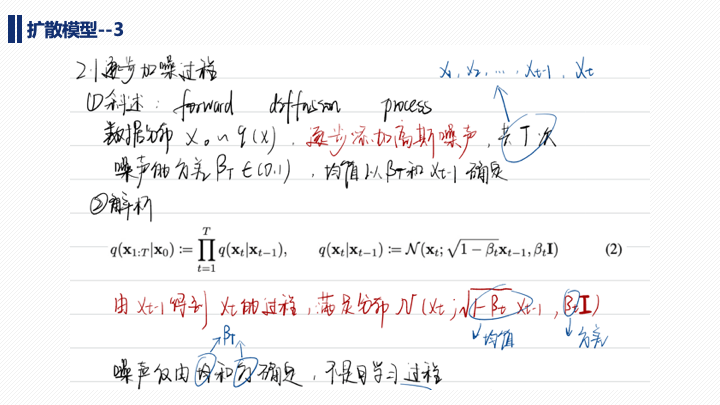 扩散模型--3
2.1 逐步加噪过程
x₁, x₂, ..., xt-1, xt
①叙述: forward diffusion process
数据分布 x₀ ~ q(x), 逐步添加高斯噪声, 共T次
噪声的方差 βT ∈ (0,1), 均值以βT和xt-1确定
②解析
q(x₁:T|x₀) := ∏ᵀₜ₌₁ q(xt|xt−1), q(xt|xt−1) := N(xt; √(1−βt) xt−1, βtI) (2)
由 xt-1 得到 xt 的过程, 满足分布 N(xt; √(1-βt) xt-1, βtI)
βT
均值
方差
噪声仅由 均和方 确定, 不是学习过程